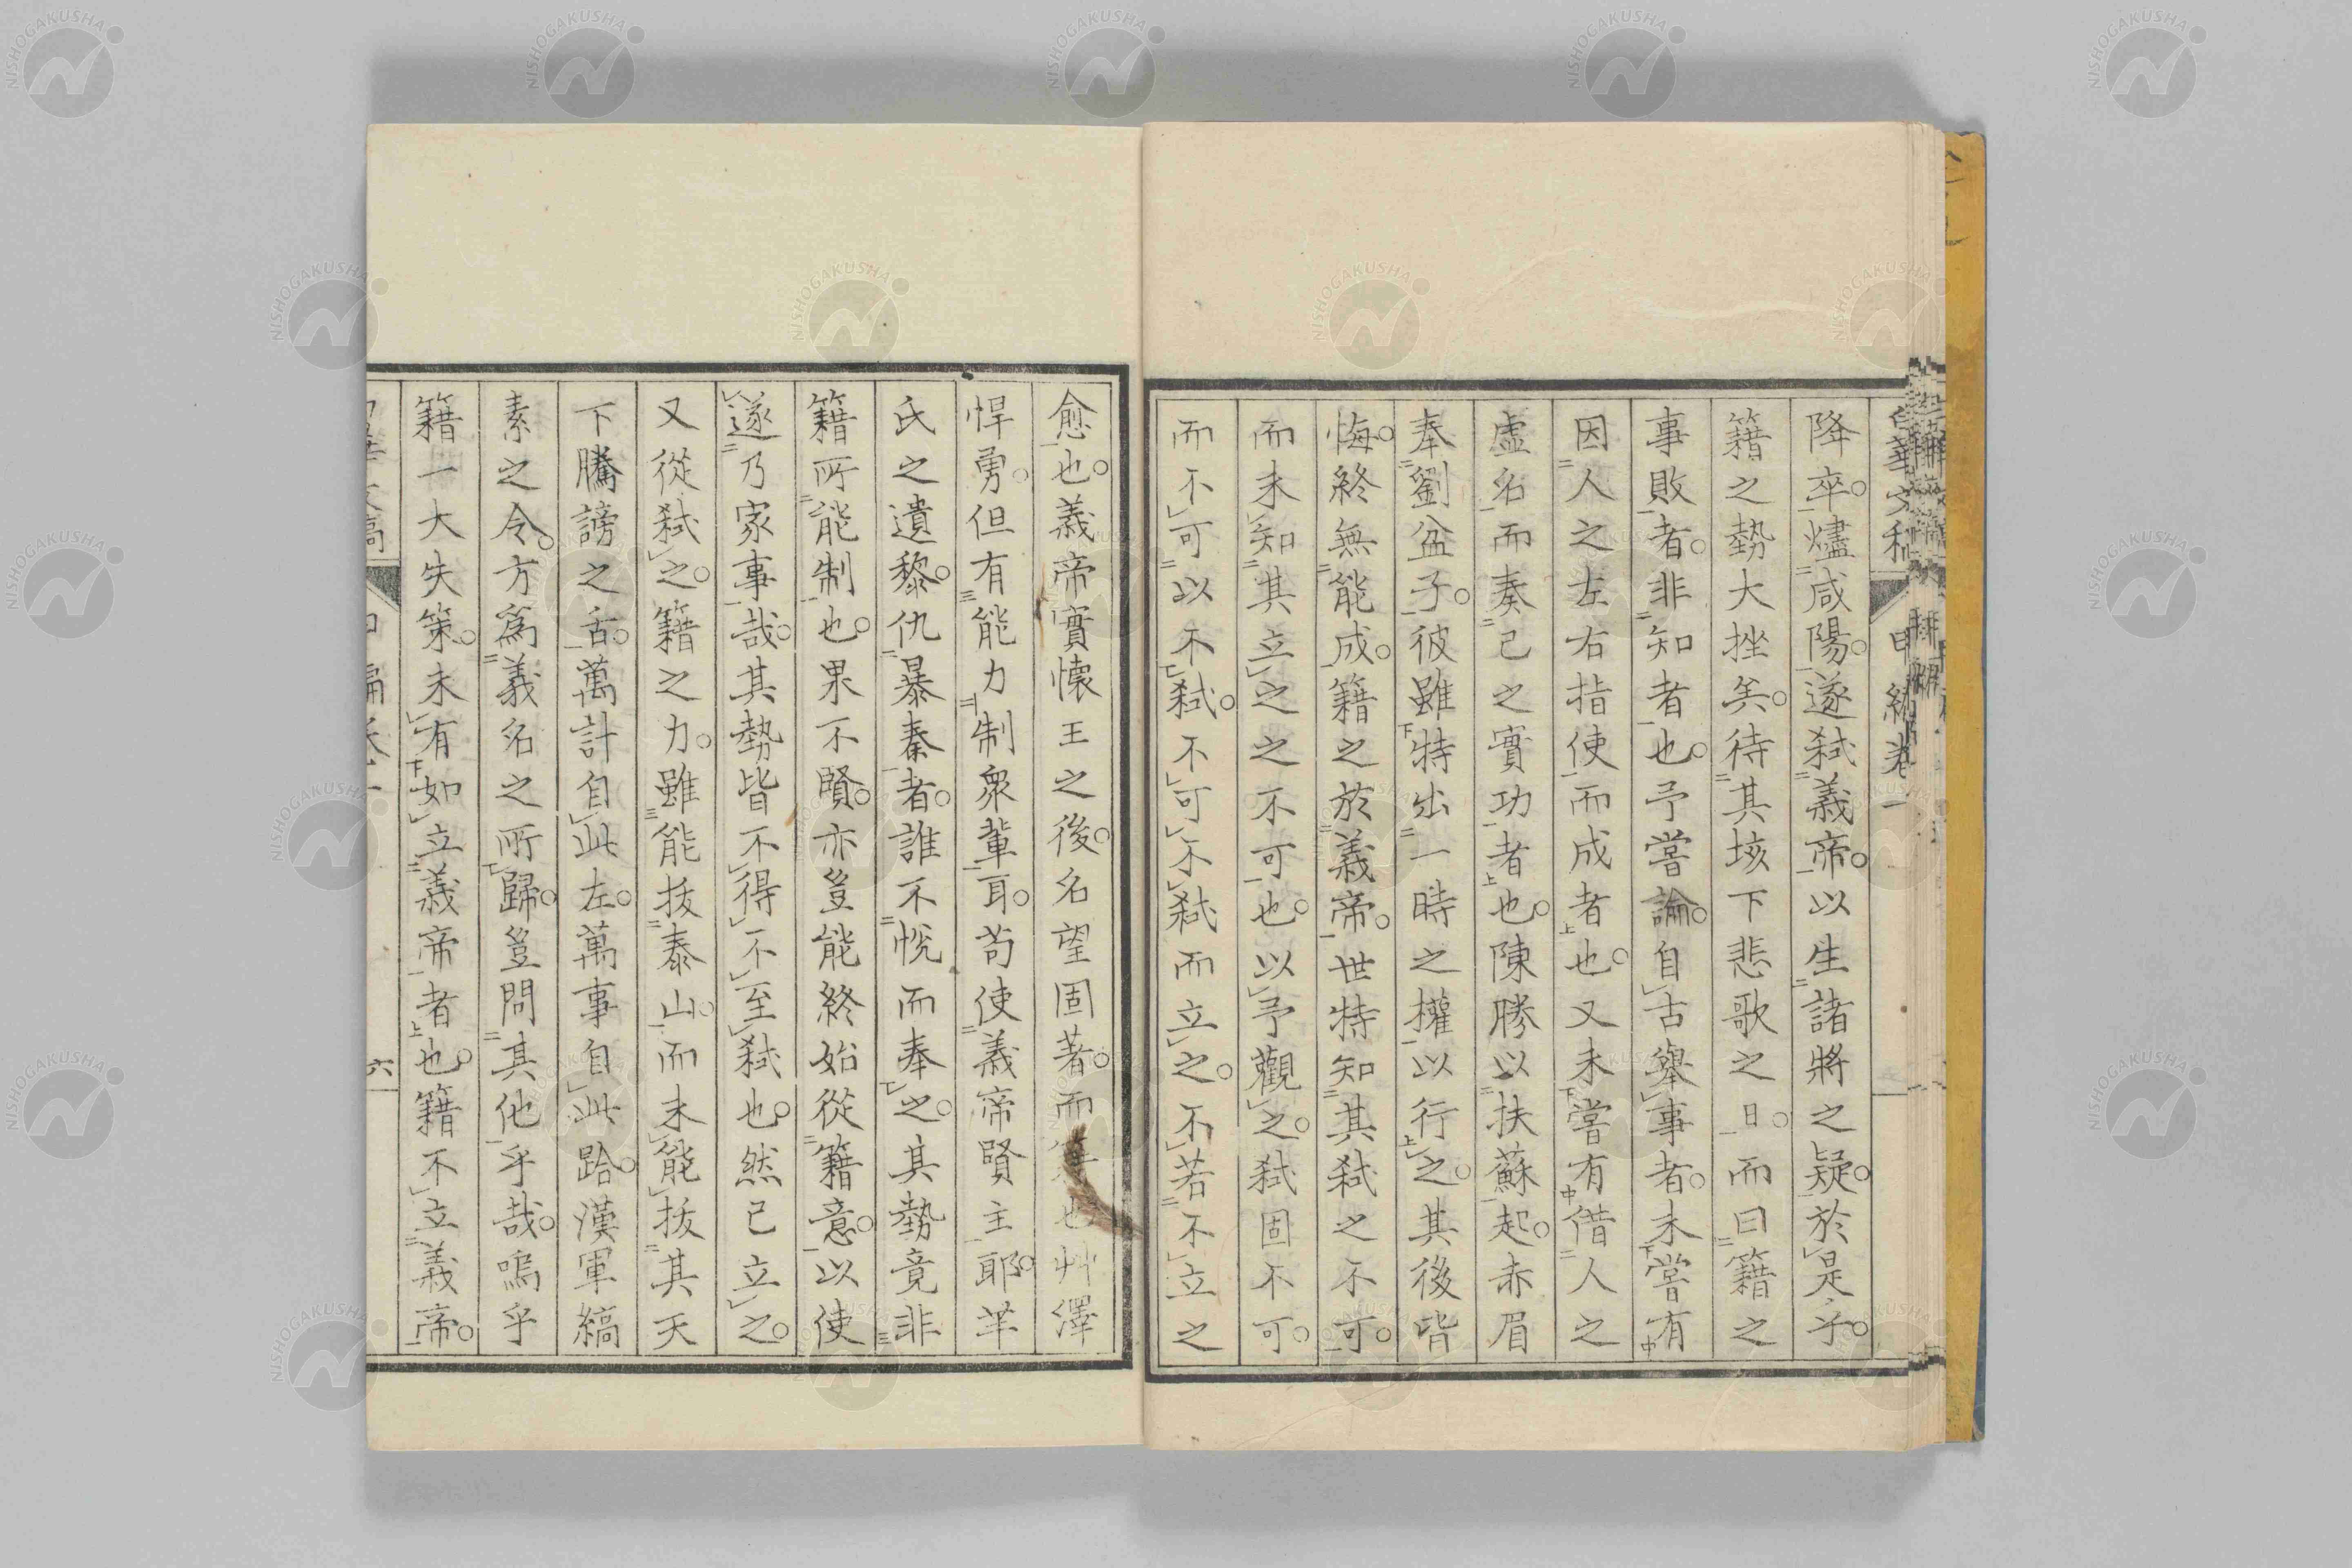 降卒。燼咸陽。遂弑義帝。以生諸將之疑。於是乎。
籍之勢大挫矣。待其垓下悲歌之日。而曰籍之
事敗者。非知者也。予嘗論。自古擧事者。未嘗有
因人之左右指使而成者也。又未嘗有借人之
虛名而奏己之實功者也。陳勝以扶蘇起。赤眉
奉劉盆子。彼雖特出一時之權以行之。其後皆
悔。終無能成。籍之於義帝。世特知其弑之不可。
而未知其立之之不可也。以予觀之。弑固不可。
而不可以不弑。不可不弑而立之。不若不立之
愈也。義帝實懷王之後。名望固著。而 也艸澤
悍勇。但有能力制衆輩耳。苟使義帝賢主耶。羋
氏之遺黎。仇暴秦者。誰不悅而奉之。其勢竟非
籍所能制也。果不賢。亦豈能終始從籍意。以使
遂乃家事哉。其勢皆不得不至弑也。然已立之。
又從弑之。籍之力。雖能拔泰山。而未能拔其天
下騰謗之舌。萬計自此左。萬事自此跲。漢軍縞
素之令。方爲義名之所歸。豈問其他乎哉。嗚乎
籍一大失策。未有如立義帝者也。籍不立義帝。
六
NISHOGAKUSHA